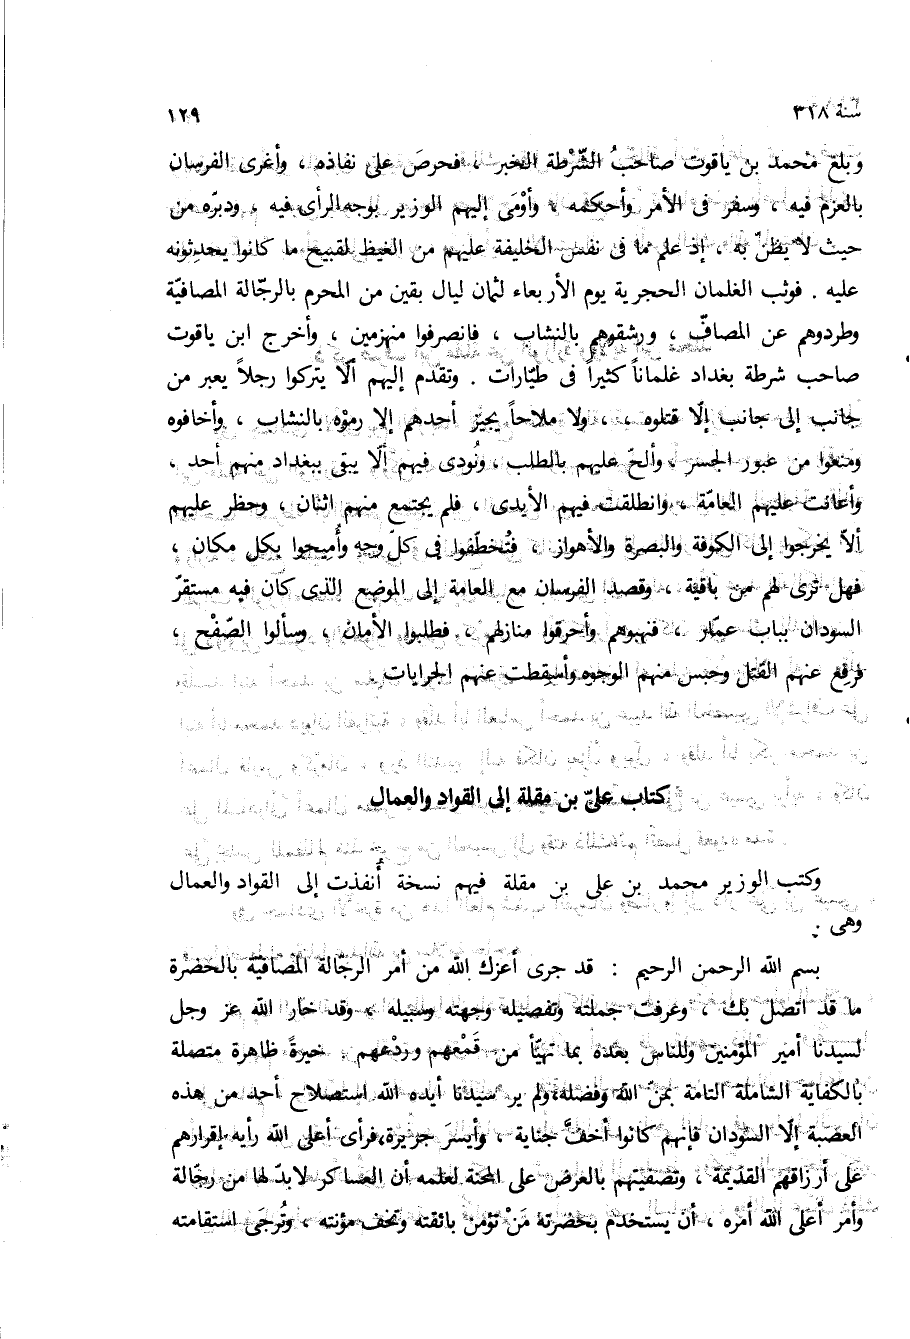 سنة ٣١٨
١٢٩
وبلغ محمد بن ياقوت صاحبُ الشّرْطة الخبر ، فحرصَ على نفاذه ، وأغرى الفرسان
بالعزم فيه ، وسفر فى الأمر وأحكمه ، وأوْمَى إليهم الوزير بوجه الرأى فيه ، ودبرّه من
حيث لا يظنّ به ، إذ علم ما فى نفس الخليفة عليهم من الغيظ لقبيح ما كانوا يحدثونه
عليه . فوثب الغلمان الحجرية يوم الأربعاء لثمان ليال بقين من المحرم بالرجّالة المصافيّة
وطردوهم عن المصافّ ، ورشقوهم بالنشاب ، فانصرفوا منهزمين ، وأخرج ابن ياقوت
صاحب شرطة بغداد غلماناً كثيراً فى طيّارات . وتقدم إليهم ألّا يتركوا رجلاً يعبر من
جانب إلى جانب إلّا قتلوه ، ولا ملاحاً يجيز أحدهم إلا رموْه بالنشاب ، وأخافوه
ومنعوا من عبور الجسر ، وألحّ عليهم بالطلب ، ونُودى فيهم ألّا يبقى ببغداد منهم أحد ،
وأعانت عليهم العامّة ، وانطلقت فيهم الأيدى ، فلم يجتمع منهم اثنان ، وحظر عليهم
ألاّ يخرجوا إلى الكوفة والبصرة والأهواز ، فتُخطّفوا فى كلّ وجه وأُمِيحوا بكل مكان ،
فهل ترى لهم من باقية ، وقصد الفرسان مع العامة إلى الموضع الذى كان فيه مستقرّ
السودان بباب عمّار ، فنهبوهم وأحرقوا منازلهم ، فطلبوا الأمان ، وسألوا الصّفْح ،
فرفع عنهم القتل وحبس منهم الوجوه وأسقِطت عنهم الجرايات
كتاب علىّ بن مقلة إلى القواد والعمال
وكتب الوزير محمد بن على بن مقلة فيهم نسخة أُنفذت إلى القواد والعمال
وهى :
بسم الله الرحمن الرحيم : قد جرى أعزك الله من أمر الرجّالة المصافيّة بالحضرة
ما قد اتصل بك ، وعرفت جملته وتفصيله وجهته وسبيله ، وقد خار الله عز وجل
لسيدنا أمير المؤمنين وللناس بعده بما تهيّأ من قَمْعهم وردْعهم خيرةً ظاهرة متصلة
بالكفاية الشاملة التامة بمنّ الله وفضله، ولم ير سيدنا أيده الله استصلاح أحد من هذه
العصبة إلّا السودان فإنهم كانوا أخفَّ جناية ، وأيسرَ جريرة، فرأى أعلى الله رأيه إقرارهم
على أرزاقهم القديمة ، وتصفيتهم بالعرض على المحنة لعلمه أن العساكر لابدّ لها من رجّالة
وأمر أعلى الله أمره ، أن يستخدم بحضرته مَنْ تؤمن بائقته وتخف مؤنته ، وتُرجَى استقامته